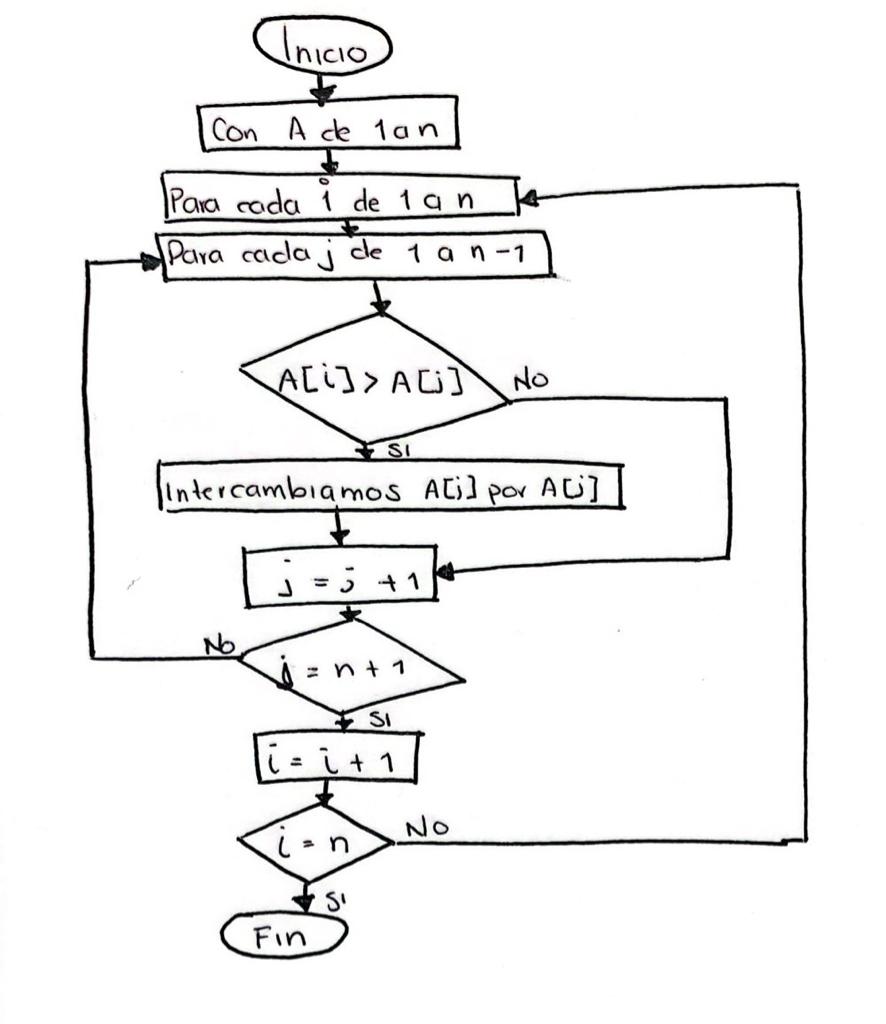 Inicio
Con A de 1 a n
Para cada i de 1 a n
Para cada j de 1 a n-1
A[i] > A[j]
No
SI
Intercambiamos A[i] por A[j]
j = j + 1
No
j = n + 1
SI
i = i + 1
i = n
No
SI
Fin